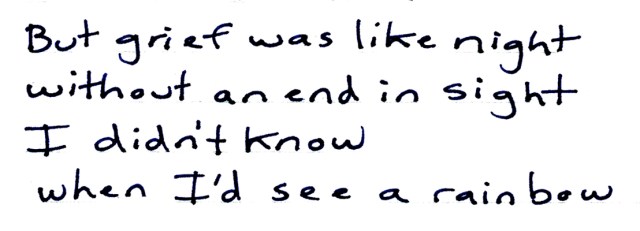 But grief was like night
without an end in sight
I didn't know
when I'd see a rainbow